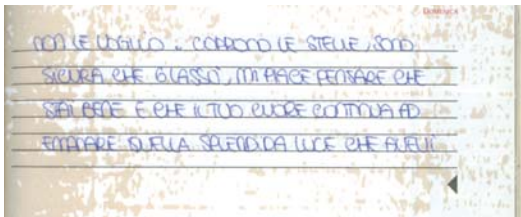 Domenica
NON LE VOGLIO. CORRONO LE STELLE, SONO
SICURA CHE GLASSÙ, MI PIACE PENSARE CHE
STAI BENE E CHE IL TUO CUORE CONTINUA AD
EMANARE QUELLA SPLENDIDA LUCE CHE AVEVI